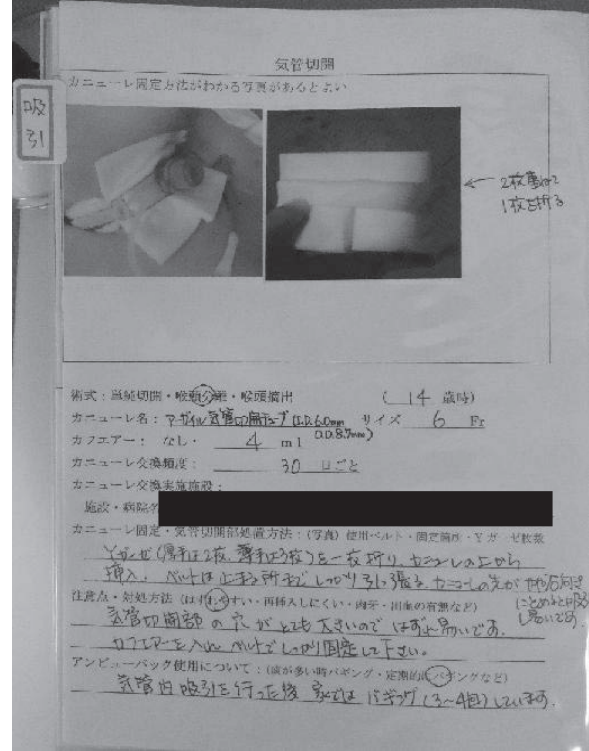 気管切開
カニューレ固定方法がわかる写真があるとよい
吸引
← 2枚重ねて
1枚を折る
術式：単純切開・喉頭分離・喉頭摘出 （ 14 歳時）
カニューレ名：アーガイル気管切開チューブ (I.D.6.0mm サイズ 6 Fr
O.D.8.7mm)
カフエアー： なし・ 4 ml
カニューレ交換頻度： 30 日ごと
カニューレ交換実施施設：
施設・病院名
カニューレ固定・気管切開部処置方法：(写真) 使用ベルト・固定箇所・Yガーゼ枚数
Yガーゼ（厚手は2枚、薄手は3枚）を一枚折り、カニューレの上から
挿入。ベルトは止まる所までしっかり引っ張る。カニューレの先が やや右向き
にとめると吸引
し易いです。
注意点・対処方法（はずれやすい・再挿入しにくい・肉芽・出血の有無など）
気管切開部の穴がとても大きいので はずれ易いです。
カフエアーを入れ ベルトでしっかり固定して下さい。
アンビューバック使用について：(痰が多い時バギング・定期的にバギングなど)
気管内吸引を行った後 家では バギング（3〜4回）しています。